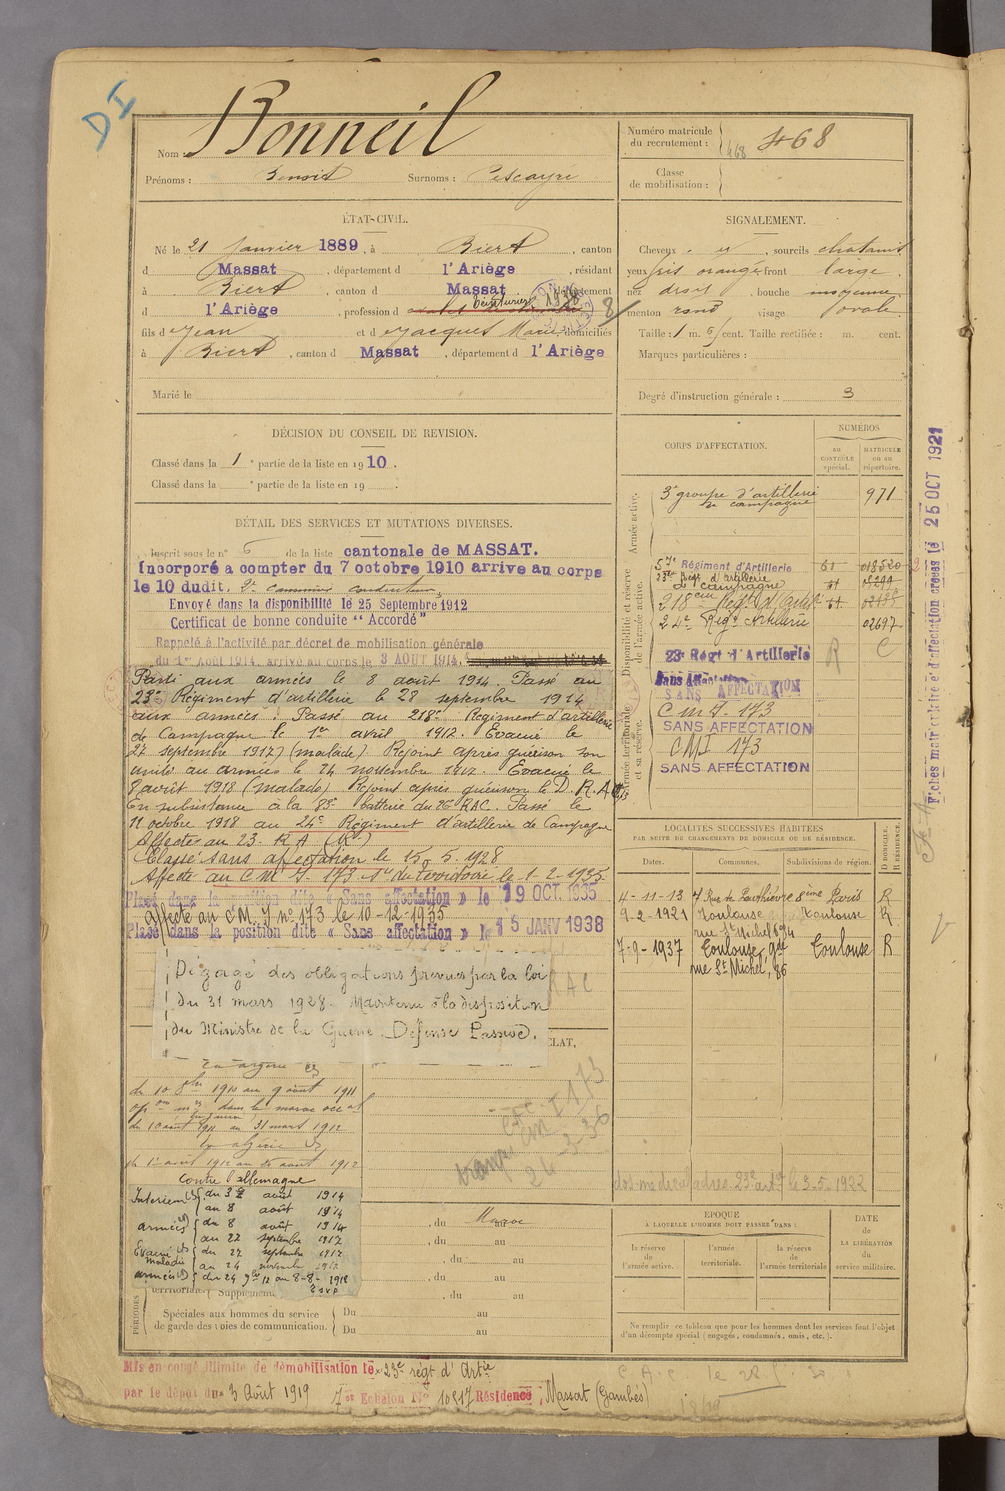 DI
Nom : Bonneil
Prénoms : Benoit Surnoms : Pescayré
Numéro matricule
du recrutement : 468 468
Classe
de mobilisation :
ÉTAT-CIVIL.
Né le 21 Janvier 1889, à Biert, canton
d Massat, département d l'Ariège, résidant
à Biert, canton d Massat, département
d l'Ariège, profession d
fils d Jean et d Jacquet Marie domiciliés
à Biert, canton d Massat, département d l'Ariège
Marié le
SIGNALEMENT.
Cheveux sourcils chatains
yeux gris orangé front large
nez droit, bouche moyenne
menton rond visage ovale
Taille : 1 m. cent. Taille rectifiée : m. cent.
Marques particulières :
Degré d'instruction générale : 3
DÉCISION DU CONSEIL DE REVISION.
Classé dans la 1e partie de la liste en 1910.
Classé dans la e partie de la liste en 19 .
DÉTAIL DES SERVICES ET MUTATIONS DIVERSES.
Inscrit sous le n° 6 de la liste cantonale de MASSAT.
Incorporé a compter du 7 octobre 1910 arrive au corps
le 10 dudit, 2e cannonier conducteur
Envoyé dans la disponibilité le 25 Septembre 1912
Certificat de bonne conduite "Accordé"
Rappelé à l'activité par décret de mobilisation générale
du 1er Août 1914, arrivé au corps le 3 AOUT 1914.
Parti aux armées le 8 août 1914. Passé au
23e Régiment d'artillerie le 28 septembre 1914
aux armées. Passé au 218e Régiment d'artillerie
de Campagne le 1er avril 1917. Evacué le
27 septembre 1917 (malade). Rejoint après guérison son
unité au armées le 24 novembre 1917. Evacué le
8 août 1918 (malade) Rejoint après guérison le D.R.A.
En subsistance à la 83e batterie du 2e RAC. Passé le
11 octobre 1918 au 24e Régiment d'artillerie de Campagne
Affecté au 23. R A
Classé sans affectation le 15.5.1928
Affecté au C M I 173 le 1-2-1935
Placé dans la position dite « Sans affectation » le 19 OCT. 1935
Affecté au C M I n° 173 le 10-12-1935
Placé dans la position dite « Sans affectation » le 15 JANV 1938
Dégagé des obligations prévues par la loi
du 31 mars 1928. Maintenu à la disposition
du Ministre de la Guerre. Défense Passive.
CORPS D'AFFECTATION.
NUMÉROS
AU CONTRÔLE spécial.
MATRICULE ou au répertoire.
Armée active.
3e groupe d'artillerie 971
de campagne
Disponibilité et réserve de l'armée active.
57e Régiment d'Artillerie 61 018520
23e Régt d'artillerie
de campagne
218eme Régt d'Artie
24e Régt Artillerie 02697
23e Régt d'Artillerie R C
Armée territoriale et sa réserve.
Sans Affectation
SANS AFFECTATION
C M I. 173
SANS AFFECTATION
CMI 173
SANS AFFECTATION
LOCALITÉS SUCCESSIVES HABITÉES
PAR SUITE DE CHANGEMENTS DE DOMICILE OU DE RÉSIDENCE.
Dates. Communes. Subdivisions de région.
D DOMICILE. R RÉSIDENCE.
4-11-13 7 Rue de Penthièvre 8ème Paris R
9-2-1921 Toulouse Toulouse R
rue St Michel 84
7-9-1937 Toulouse, gde Toulouse R
rue St Michel, 86
Fiches matricule et d'affectation créées le 25 OCT 1921
CLAT,
En algérie
du 10 8bre 1910 au 9 août 1911
du 10 août 1911 au 31 mars 1912
En algérie
au 26 août 1912
Contre l'allemagne
Interieur du 3 août 1914
au 8 août 1914
armées du 8 août 1914
au 27 septembre 1917
Evacué du 27 septembre 1917
malade au 24 novembre 1917
armées du 24 9bre 17 au 8-8-1918
, du Maroc au
, du au
du au
, du au
, du au
PÉRIODES
territoriale. Supplément
Spéciales aux hommes du service
de garde des voies de communication.
Du au
Du au
dos. medical adressé 23e artie le 3-5-1922
ÉPOQUE
À LAQUELLE L'HOMME DOIT PASSER DANS :
la réserve de l'armée active.
l'armée territoriale.
la réserve de l'armée territoriale
DATE de LA LIBÉRATION du service militaire.
Ne remplir ce tableau que pour les hommes dont les services font l'objet
d'un décompte spécial (engagés, condamnés, omis, etc.).
Mis en congé illimité de démobilisation le 23e régt d'Artie
par le dépôt du 3 Août 1919 7e Echelon N° 10817 Résidence, Massat (Gambés)